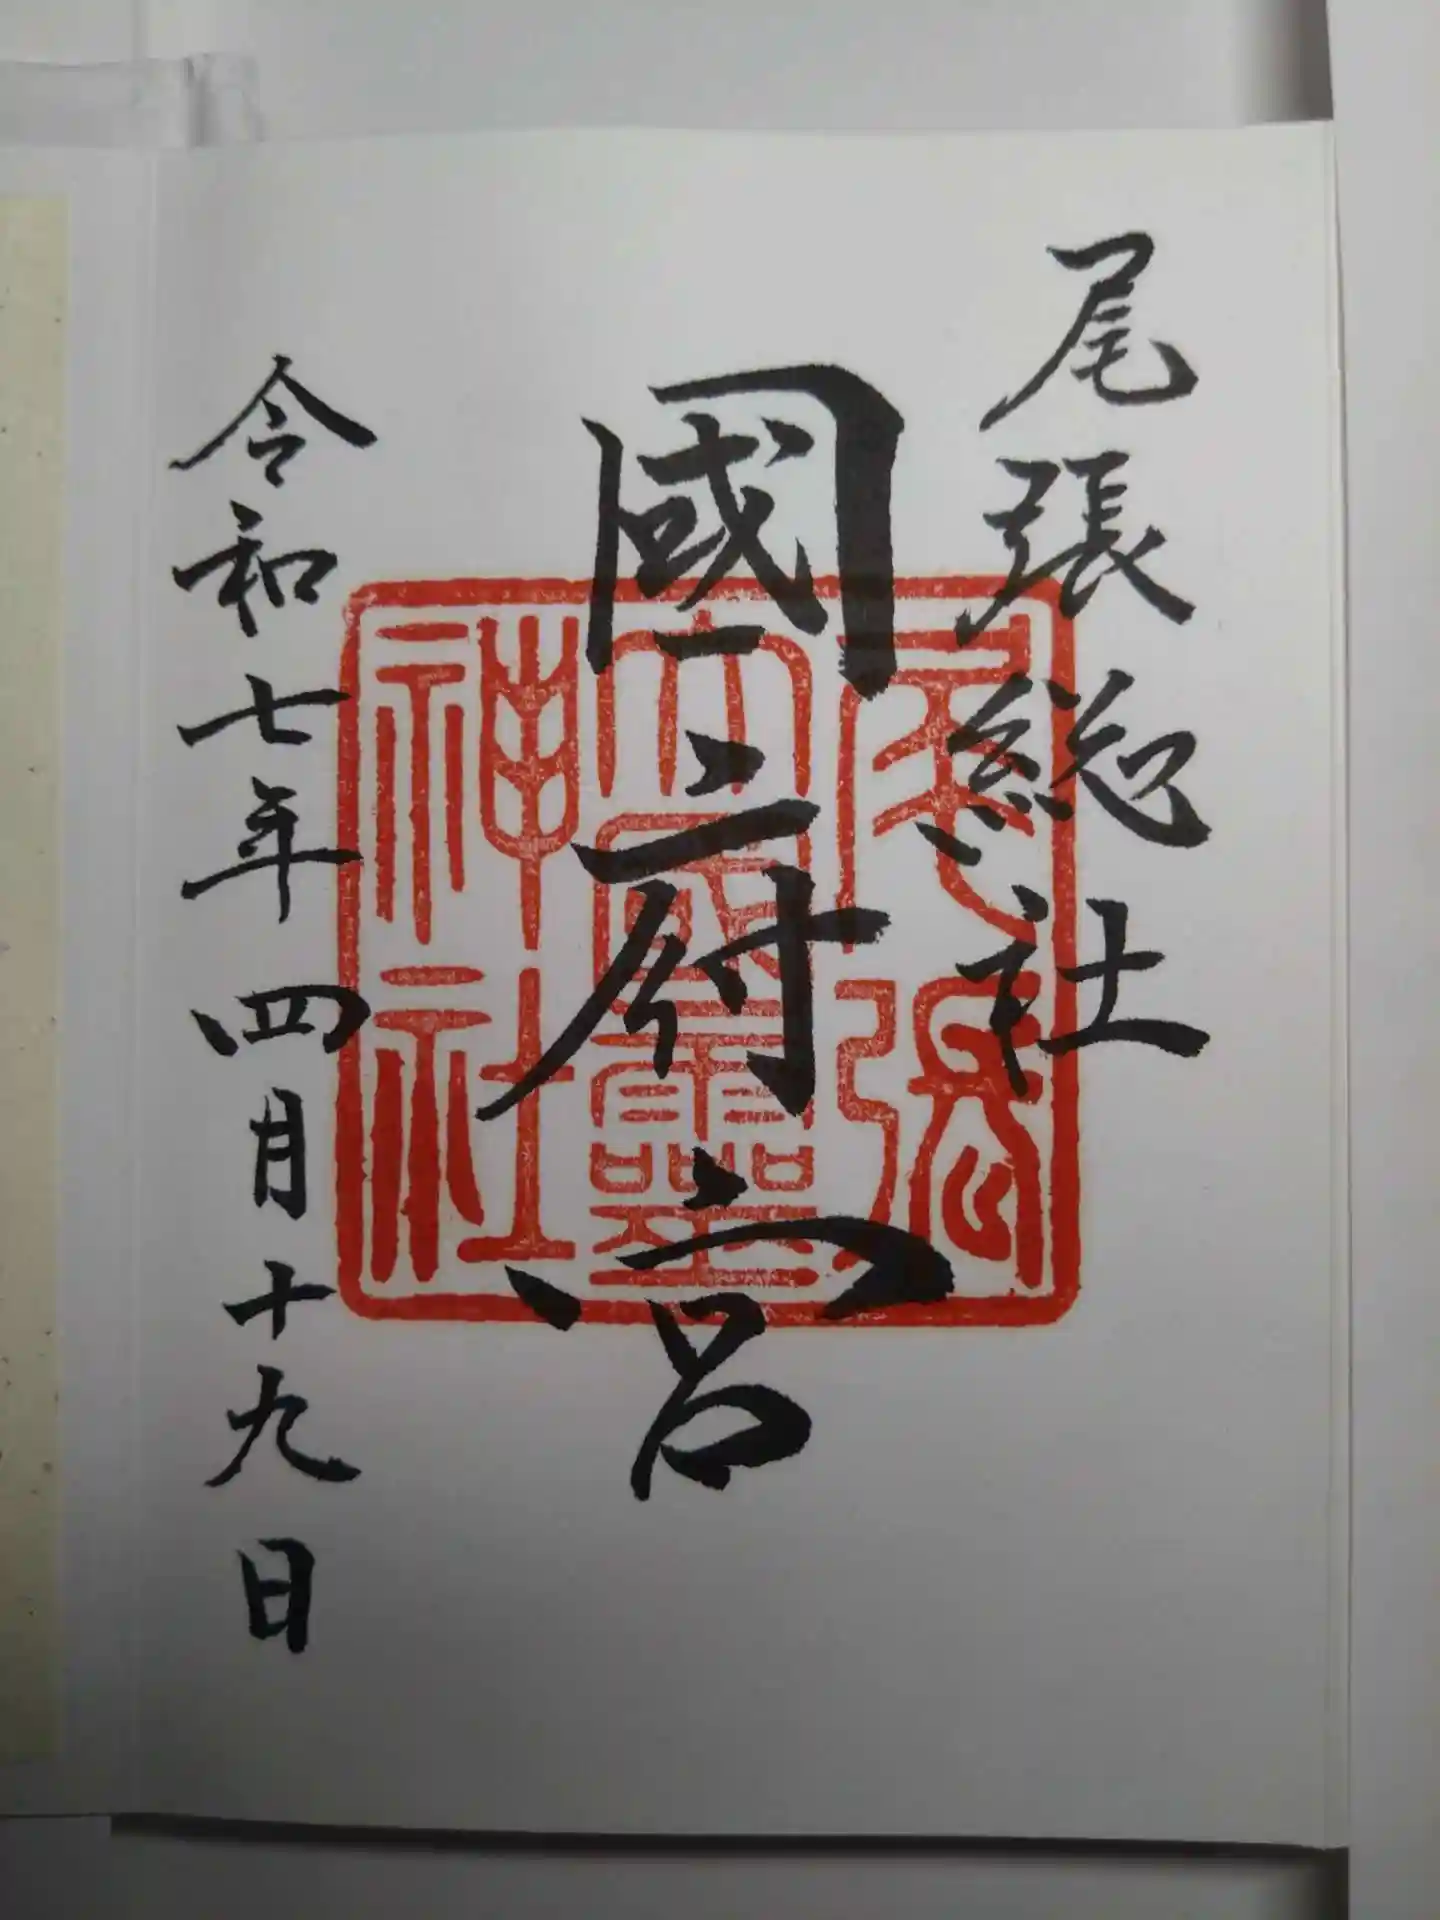 尾張総社
國府宮
令和七年四月十九日
尾張
大國霊
神社